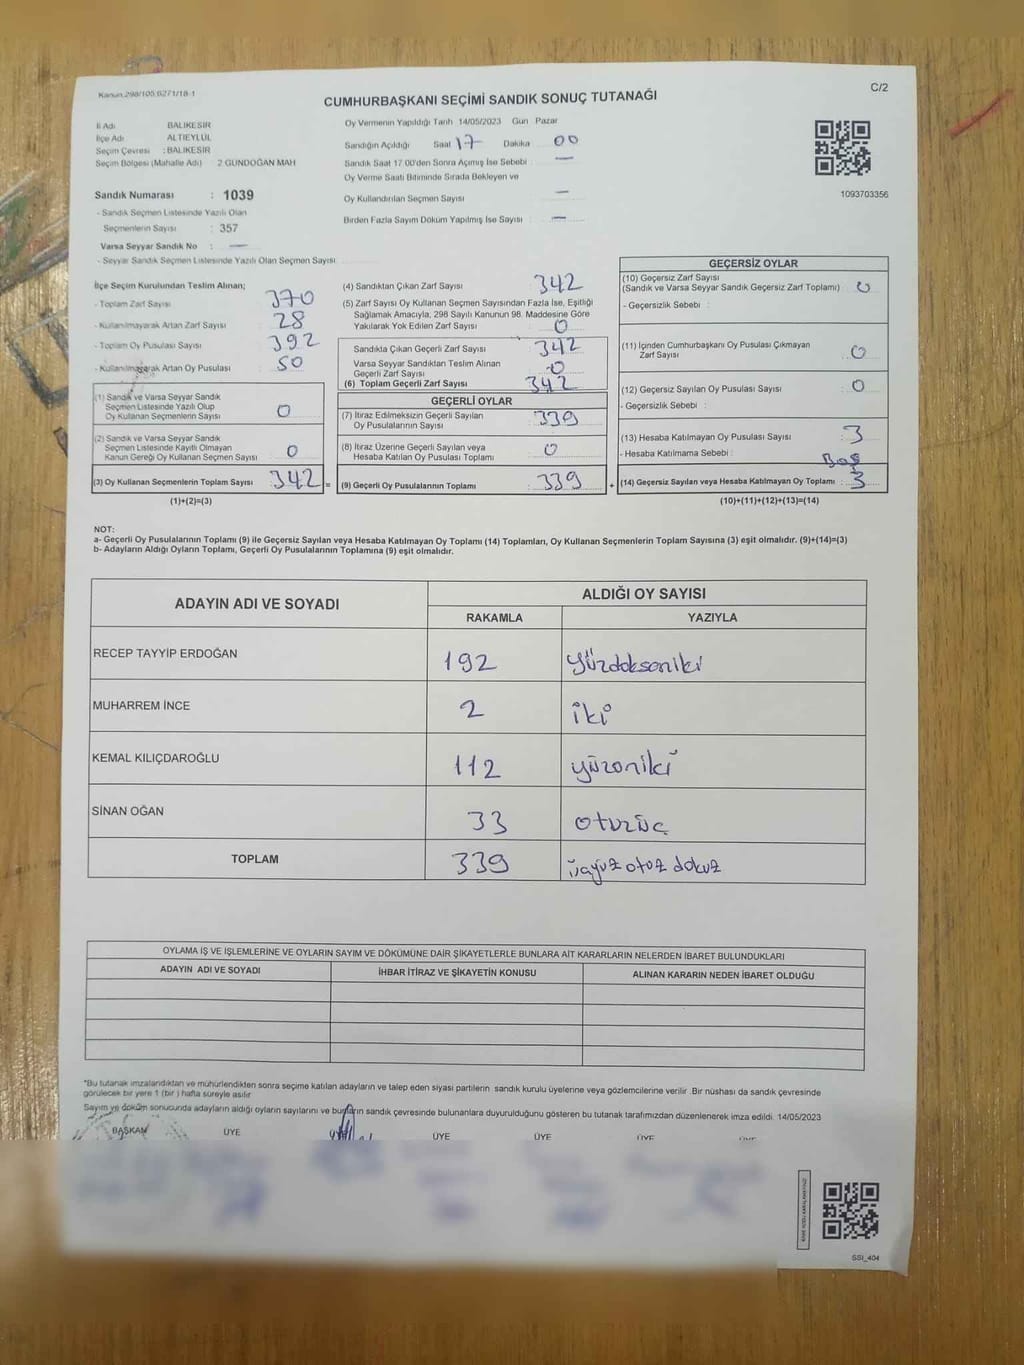 Kanun.298/105,6271/18-1
C/2
CUMHURBAŞKANI SEÇİMİ SANDIK SONUÇ TUTANAĞI
İl Adı BALIKESİR
İlçe Adı ALTIEYLÜL
Seçim Çevresi : BALIKESİR
Seçim Bölgesi (Mahalle Adı) 2 GÜNDOĞAN MAH
Sandık Numarası : 1039
- Sandık Seçmen Listesinde Yazılı Olan
Seçmenlerin Sayısı : 357
Varsa Seyyar Sandık No : —
- Seyyar Sandık Seçmen Listesinde Yazılı Olan Seçmen Sayısı
Oy Vermenin Yapıldığı Tarih 14/05/2023 Gün Pazar
Sandığın Açıldığı Saat 17 Dakika 00
Sandık Saat 17 00'den Sonra Açımış İse Sebebi : —
Oy Verme Saati Bitiminde Sırada Bekleyen ve
Oy Kullandırılan Seçmen Sayısı —
Birden Fazla Sayım Döküm Yapılmış İse Sayısı : —
1093703356
İlçe Seçim Kurulundan Teslim Alınan;
- Toplam Zarf Sayısı 370
- Kullanılmayarak Artan Zarf Sayısı 28
- Toplam Oy Pusulası Sayısı 392
- Kullanılmayarak Artan Oy Pusulası 50
(1) Sandık ve Varsa Seyyar Sandık
Seçmen Listesinde Yazılı Olup
Oy Kullanan Seçmenlerin Sayısı 0
(2) Sandık ve Varsa Seyyar Sandık
Seçmen Listesinde Kayıtlı Olmayan
Kanun Gereği Oy Kullanan Seçmen Sayısı 0
(3) Oy Kullanan Seçmenlerin Toplam Sayısı : 342 =
(1)+(2)=(3)
(4) Sandıktan Çıkan Zarf Sayısı 342
(5) Zarf Sayısı Oy Kullanan Seçmen Sayısından Fazla İse, Eşitliği
Sağlamak Amacıyla, 298 Sayılı Kanunun 98. Maddesine Göre
Yakılarak Yok Edilen Zarf Sayısı 0
Sandıkta Çıkan Geçerli Zarf Sayısı 342
Varsa Seyyar Sandıktan Teslim Alınan
Geçerli Zarf Sayısı 0
(6) Toplam Geçerli Zarf Sayısı 342
GEÇERLİ OYLAR
(7) İtiraz Edilmeksizin Geçerli Sayılan
Oy Pusulalarının Sayısı 339
(8) İtiraz Üzerine Geçerli Sayılan veya
Hesaba Katılan Oy Pusulası Toplamı 0
(9) Geçerli Oy Pusulalarının Toplamı : 339 +
GEÇERSİZ OYLAR
(10) Geçersiz Zarf Sayısı
(Sandık ve Varsa Seyyar Sandık Geçersiz Zarf Toplamı) 0
- Geçersizlik Sebebi :
(11) İçinden Cumhurbaşkanı Oy Pusulası Çıkmayan
Zarf Sayısı 0
(12) Geçersiz Sayılan Oy Pusulası Sayısı 0
- Geçersizlik Sebebi :
(13) Hesaba Katılmayan Oy Pusulası Sayısı 3
- Hesaba Katılmama Sebebi : Boş
(14) Geçersiz Sayılan veya Hesaba Katılmayan Oy Toplamı : 3
(10)+(11)+(12)+(13)=(14)
NOT:
a- Geçerli Oy Pusulalarının Toplamı (9) ile Geçersiz Sayılan veya Hesaba Katılmayan Oy Toplamı (14) Toplamları, Oy Kullanan Seçmenlerin Toplam Sayısına (3) eşit olmalıdır. (9)+(14)=(3)
b- Adayların Aldığı Oyların Toplamı, Geçerli Oy Pusulalarının Toplamına (9) eşit olmalıdır.
ADAYIN ADI VE SOYADI ALDIĞI OY SAYISI
RAKAMLA YAZIYLA
RECEP TAYYİP ERDOĞAN 192 yüzdoksaniki
MUHARREM İNCE 2 iki
KEMAL KILIÇDAROĞLU 112 yüzoniki
SİNAN OĞAN 33 otuzüç
TOPLAM 339 üçyüz otuz dokuz
OYLAMA İŞ VE İŞLEMLERİNE VE OYLARIN SAYIM VE DÖKÜMÜNE DAİR ŞİKAYETLERLE BUNLARA AİT KARARLARIN NELERDEN İBARET BULUNDUKLARI
ADAYIN ADI VE SOYADI İHBAR İTİRAZ VE ŞİKAYETİN KONUSU ALINAN KARARIN NEDEN İBARET OLDUĞU
*Bu tutanak imzalandıktan ve mühürlendikten sonra seçime katılan adayların ve talep eden siyasi partilerin sandık kurulu üyelerine veya gözlemcilerine verilir. Bir nüshası da sandık çevresinde
görülecek bir yere 1 (bir ) hafta süreyle asılır
Sayım ve döküm sonucunda adayların aldığı oyların sayılarını ve bunların sandık çevresinde bulunanlara duyurulduğunu gösteren bu tutanak tarafımızdan düzenlenerek imza edildi. 14/05/2023
BAŞKAN ÜYE ÜYE ÜYE ÜYE
SSI_404